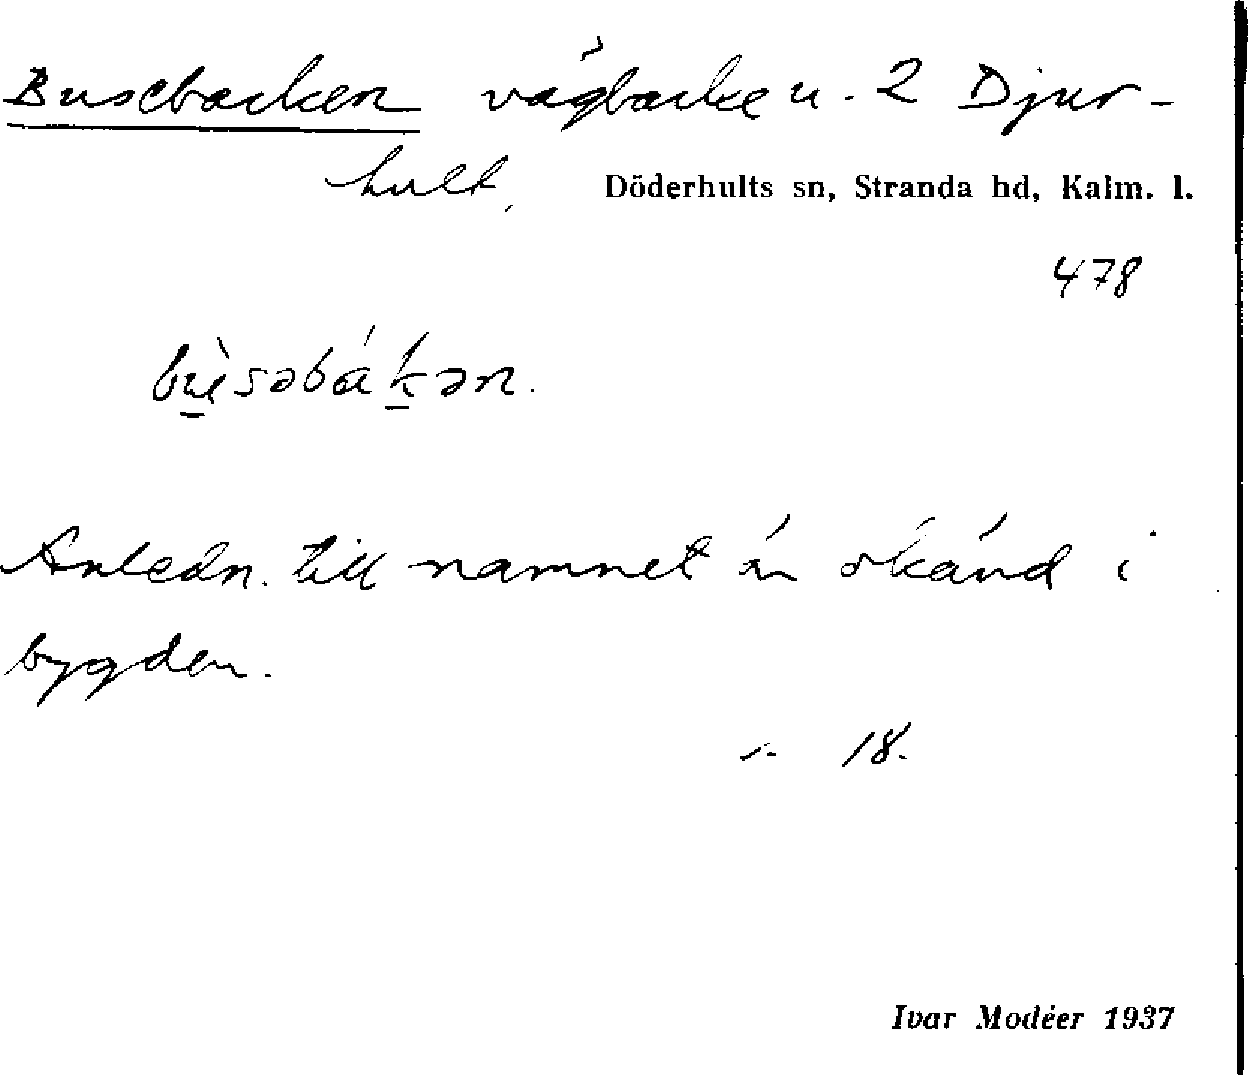 Busebacken vägbacke u. 2 Djur-
hult. Döderhults sn, Stranda hd, Kalm. l.
478
bu̱̇̀səbáḵən.
Anledn. till namnet är okänd i
bygden.
18.
Ivar Modéer 1937